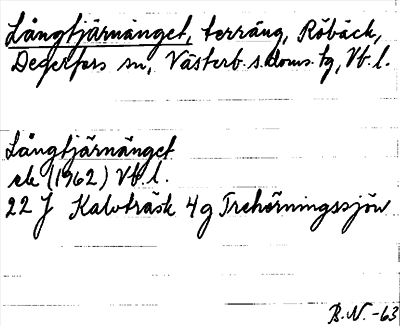 Långtjärnänget, terräng, Röbäck,
Degerfors sn, Västerb. s. doms. tg, Vb. l.
Långtjärnänget
ek (1962) Vb. l.
22 J Kalvträsk 4g Trehörningssjön
B.N. -63